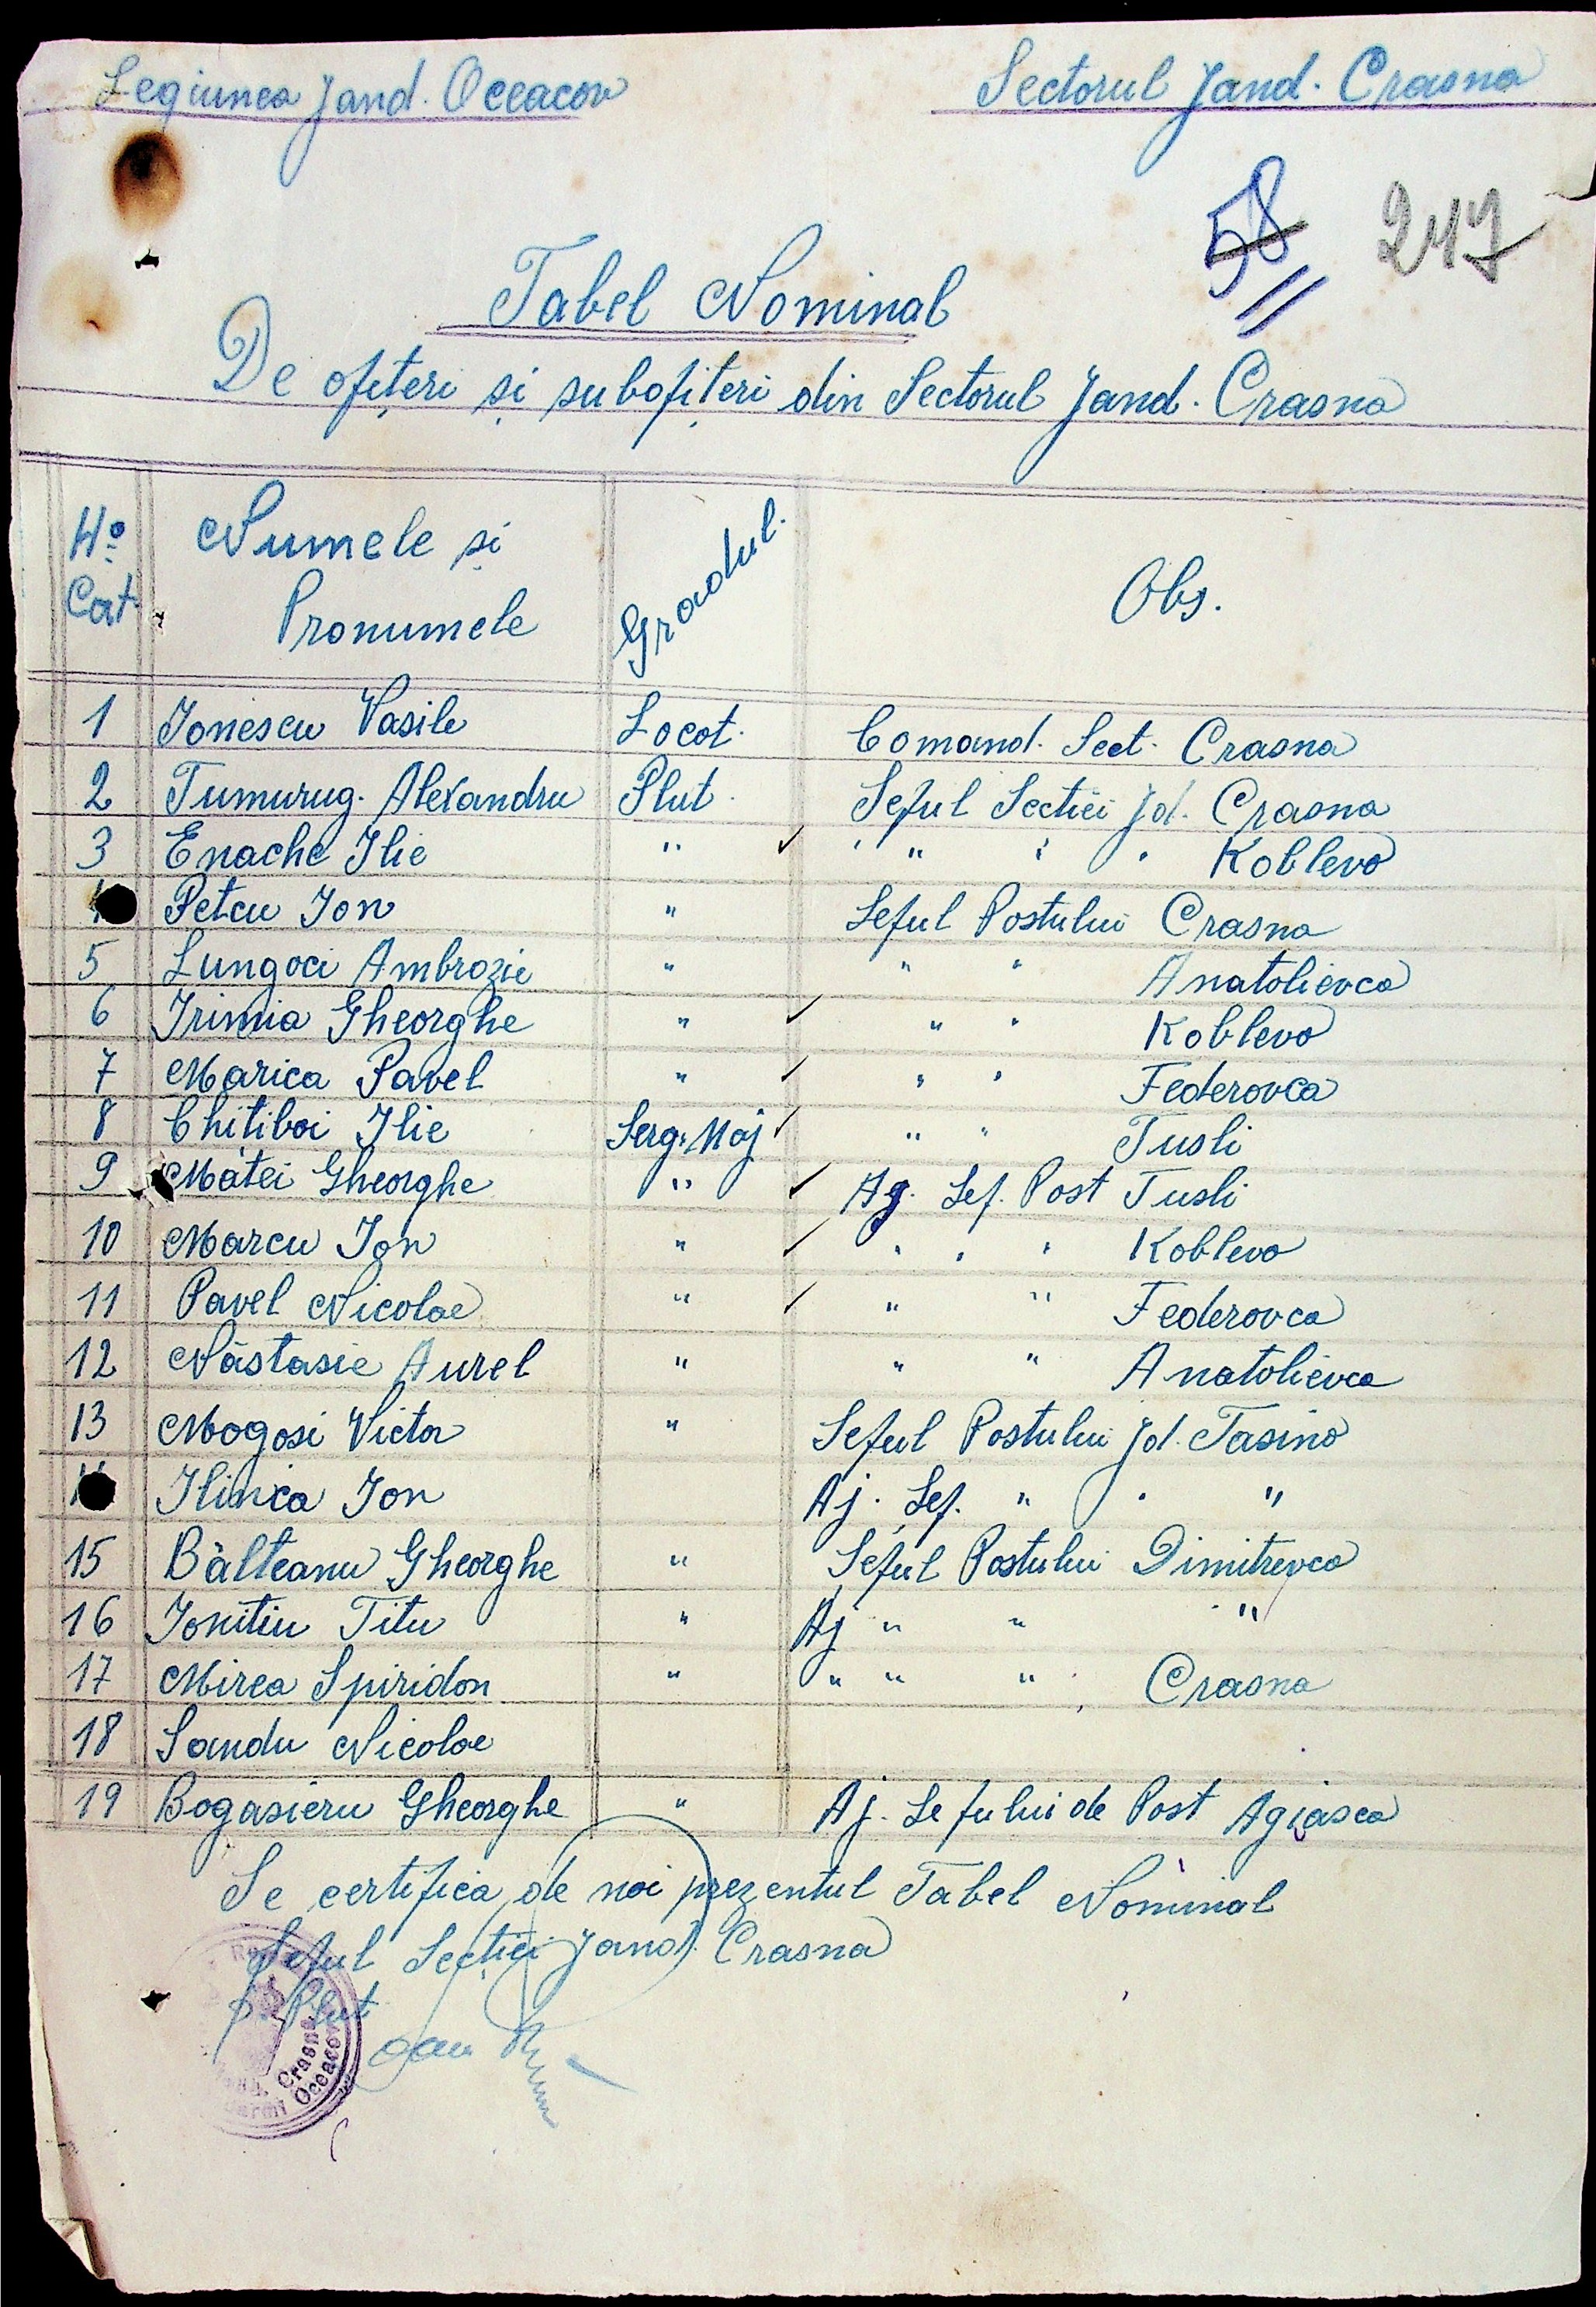 Legiunea Jand. Oceacov Sectorul Jand. Crasna
58 247
Tabel Nominal
De ofițeri și subofițeri din Sectorul Jand. Crasna
No Crt. Numele și Pronumele Gradul. Obs.
1 Ionescu Vasile Locot. Comand. Sect. Crasna
2 Tumurug. Alexandru Plut. Seful Sectiei Jd. Crasna
3 Enache Ilie " ✓ " " " " Koblevo
4 Petcu Ion " Seful Postului Crasna
5 Lungoci Ambrozie " " " Anatolievca
6 Irimia Gheorghe " ✓ " " Koblevo
7 Marica Pavel " ✓ " " Federovca
8 Chițiboi Ilie Serg. Maj ✓ " " Tusli
9 Matei Gheorghe " ✓ Aj. Sef. Post Tusli
10 Marcu Ion " ✓ " " " Koblevo
11 Pavel Nicolae " ✓ " " Federovca
12 Năstasie Aurel " " " Anatolievca
13 Mogosi Victor " Seful Postului Jd. Tasino
14 Ilinca Ion Aj. Sef. " " "
15 Bălteanu Gheorghe " Seful Postului Dimitrevca
16 Ionitiu Titu " Aj " " "
17 Mirea Spiridon " " " " Crasna
18 Sandu Nicolae
19 Bogasieru Gheorghe " Aj. Sefului de Post Agiasca
Se certifica de noi prezentul Tabel Nominal
Seful Secției Jand. Crasna
Plut
Crasna
Oceacov